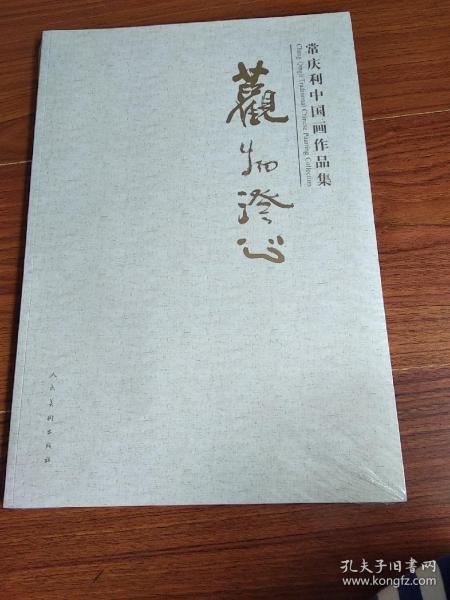 常庆利中国画作品集
Chang Qingli Traditional Chinese Painting Collection
觀物澄心
人民美术出版社
孔夫子旧书网
www.kongfz.com